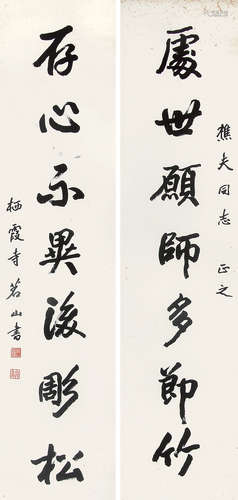 樵夫同志 正之
處世願師多節竹
存心不異後彫松
栖霞寺茗山書